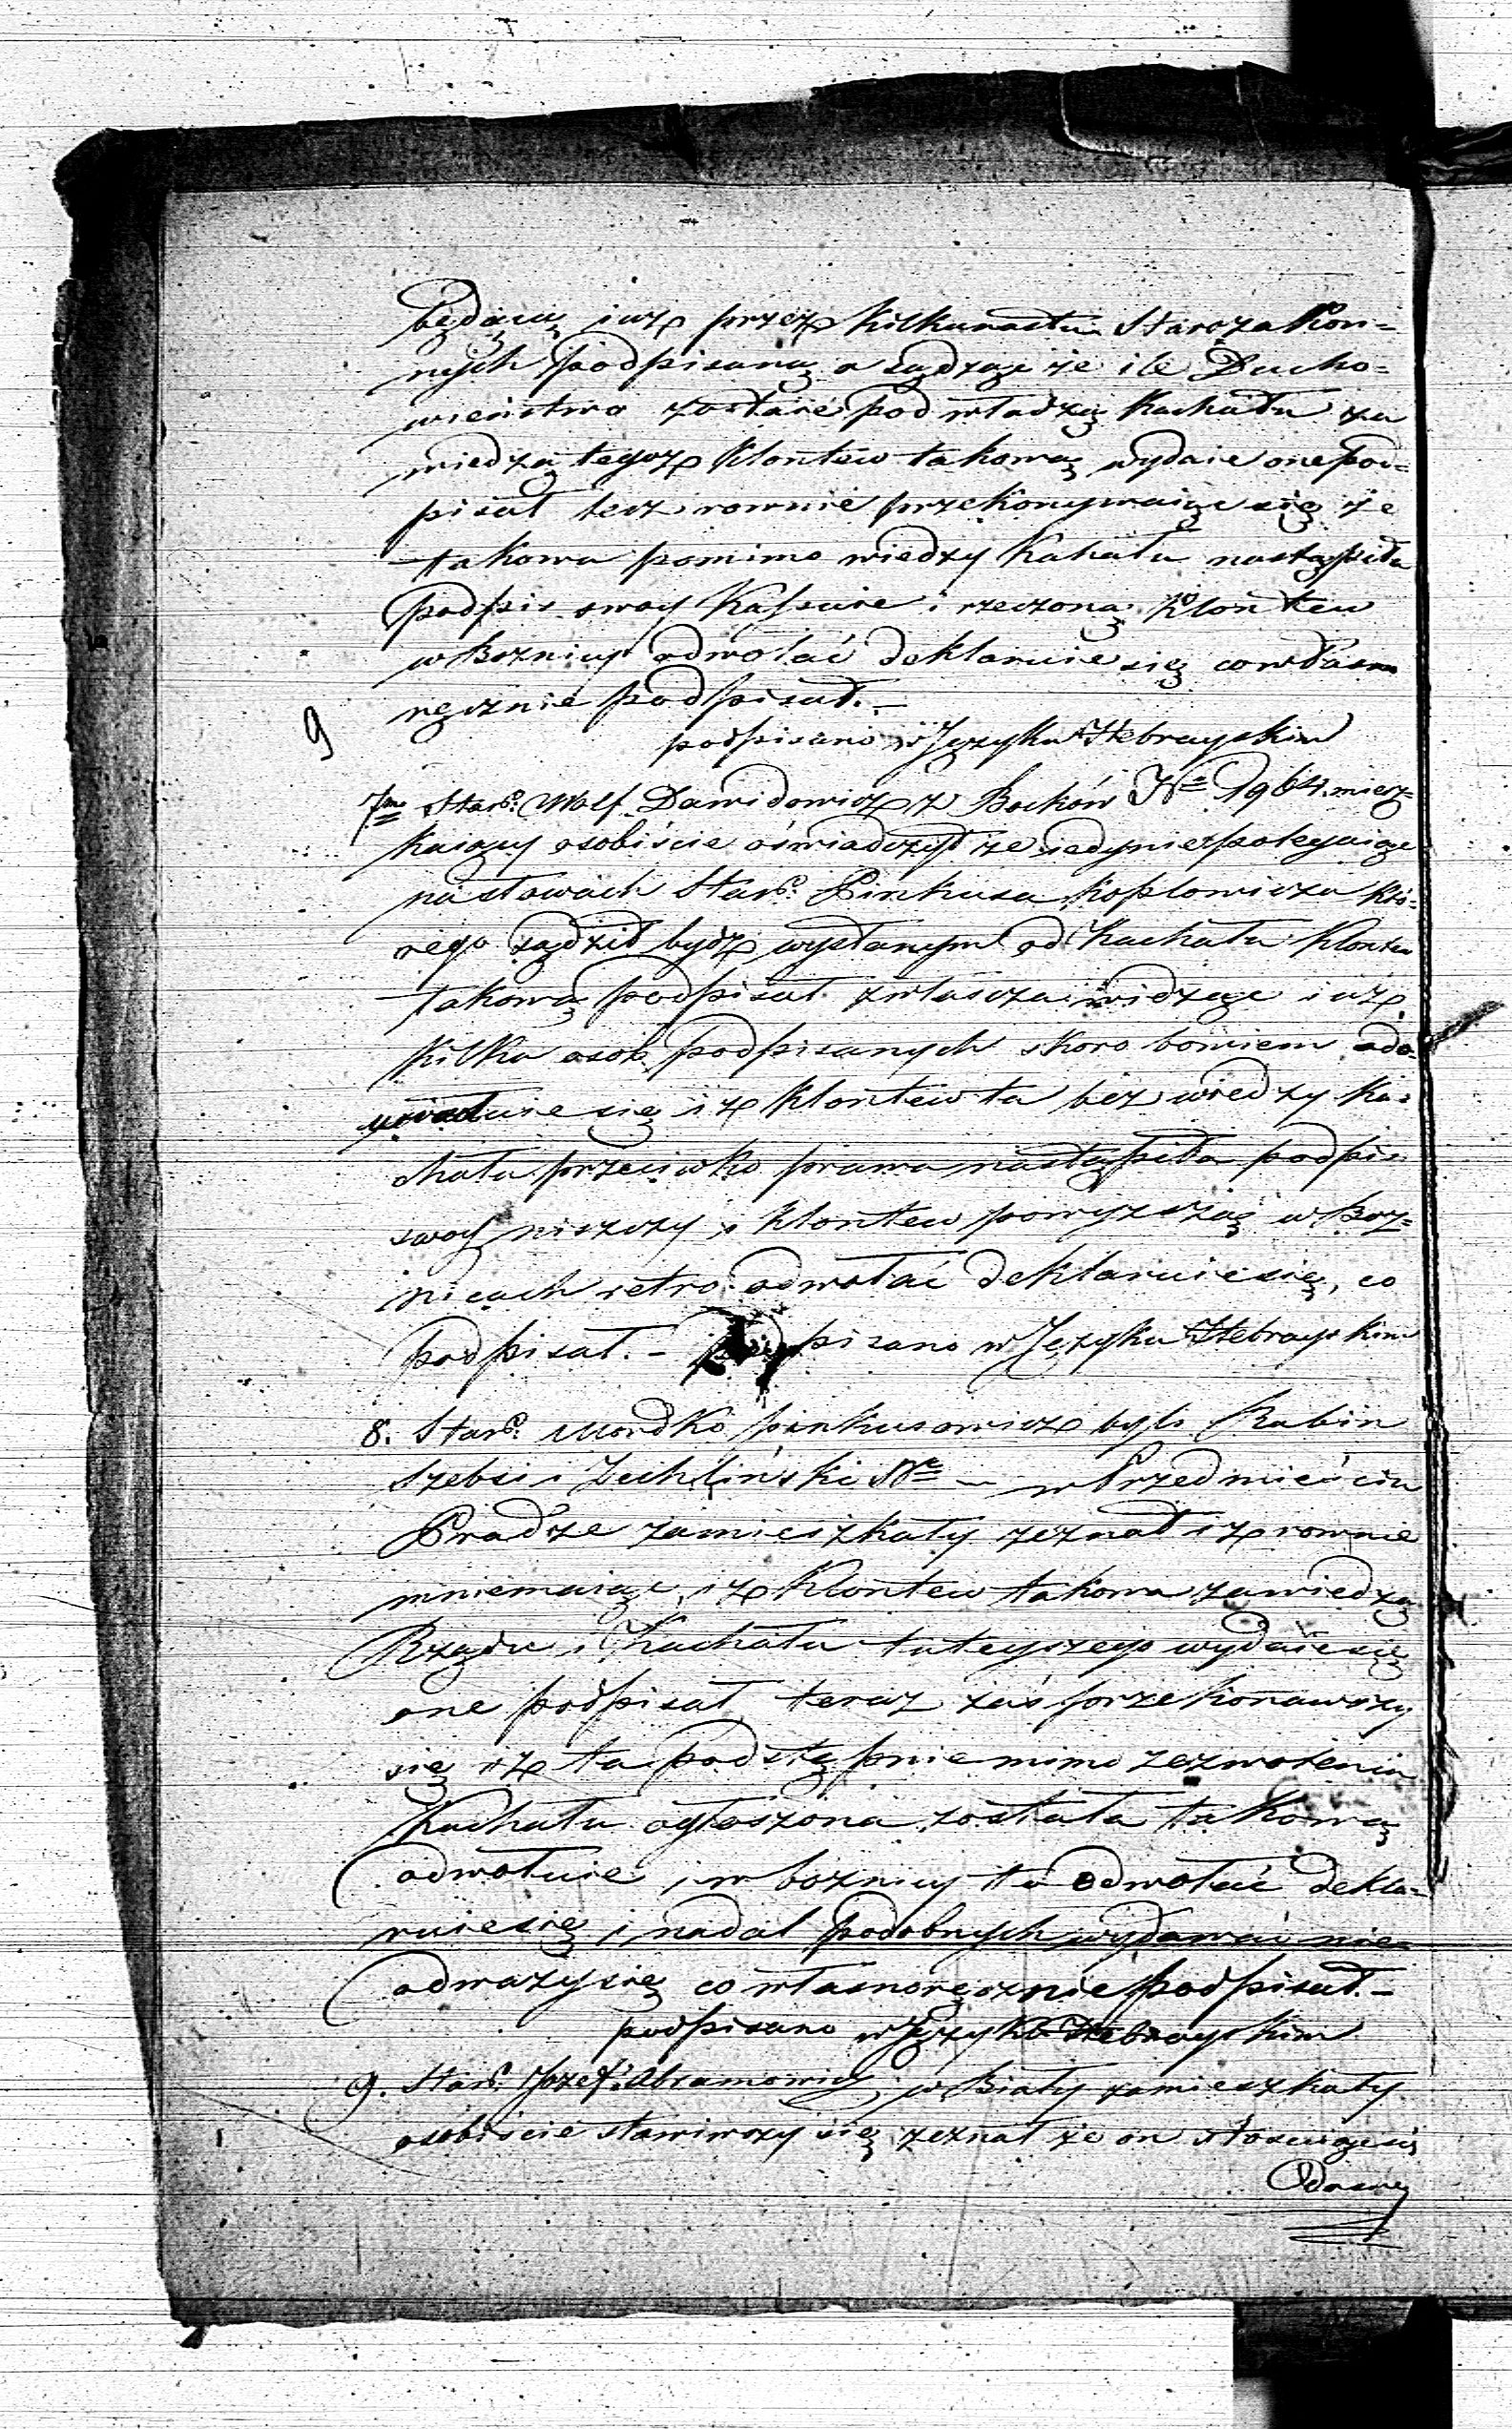 będącą iuż przez kilkunastu Starozakon=
nych podpisaną a sądząc że ile Ducho=
wieństwo zostaie pod władzą Kachału za
wiedzą tegoż Klontew takową wydaie one pod=
pisał lecz rownie przekonywaiąc się że
takowa pomimo wiedzy Kahału nastąpiła
podpis swoy Kassuie i rzeczoną Klontew
w Boznicy odwołać deklaruie się co własno
ręcznie podpisał. —
podpisano w Języku Hebrayskim
9
7mo Staro. Wolf Dawidowicz z Boćków Nro 1964. miesz=
kaiący osobiście oświadczył że iedynie polegaiąc
na słowach Staro. Pinkusa Koplowicza któ=
rego sądził bydź wysłanym od Kachału Klontew
takową podpisał zwłaszcza widząc iuż
kilka osob podpisanych skoro bowiem
się iż Klontew ta bez wiedzy Ka=
chału przeciwko prawa nastąpiła podpis
swoy niszczy i Klontew powyższą w Boz=
nicach retro odwołać deklaruie się, co
podpisał. – podpisano w Języku Hebrayskim
8. Staro. Mordko Pinkusowicz były Rabin
Szebsi i Zechliński Nro — w Przedmieściu
Pradze zamieszkały zeznał iż rownie
mniemaiąc, iż Klontew takowa za wiedzą
Rządu i Kachału tuteyszego wydaie się
one podpisał teraz zaś przekonawszy
się iż ta podstępnie mimo zezwolenia
Kachału ogłoszona została takową
odwołuie i w boznicy tu odwołać dekla=
ruie się i nadal podobnych wydawać nie=
odważy się co własnoręcznie podpisał. –
podpisano w Języku Hebrayskim
9. Staro. Jozef Abramowicz w Biały zamieszkały
osobiście stawiwszy się zeznał że on stosuiąc się